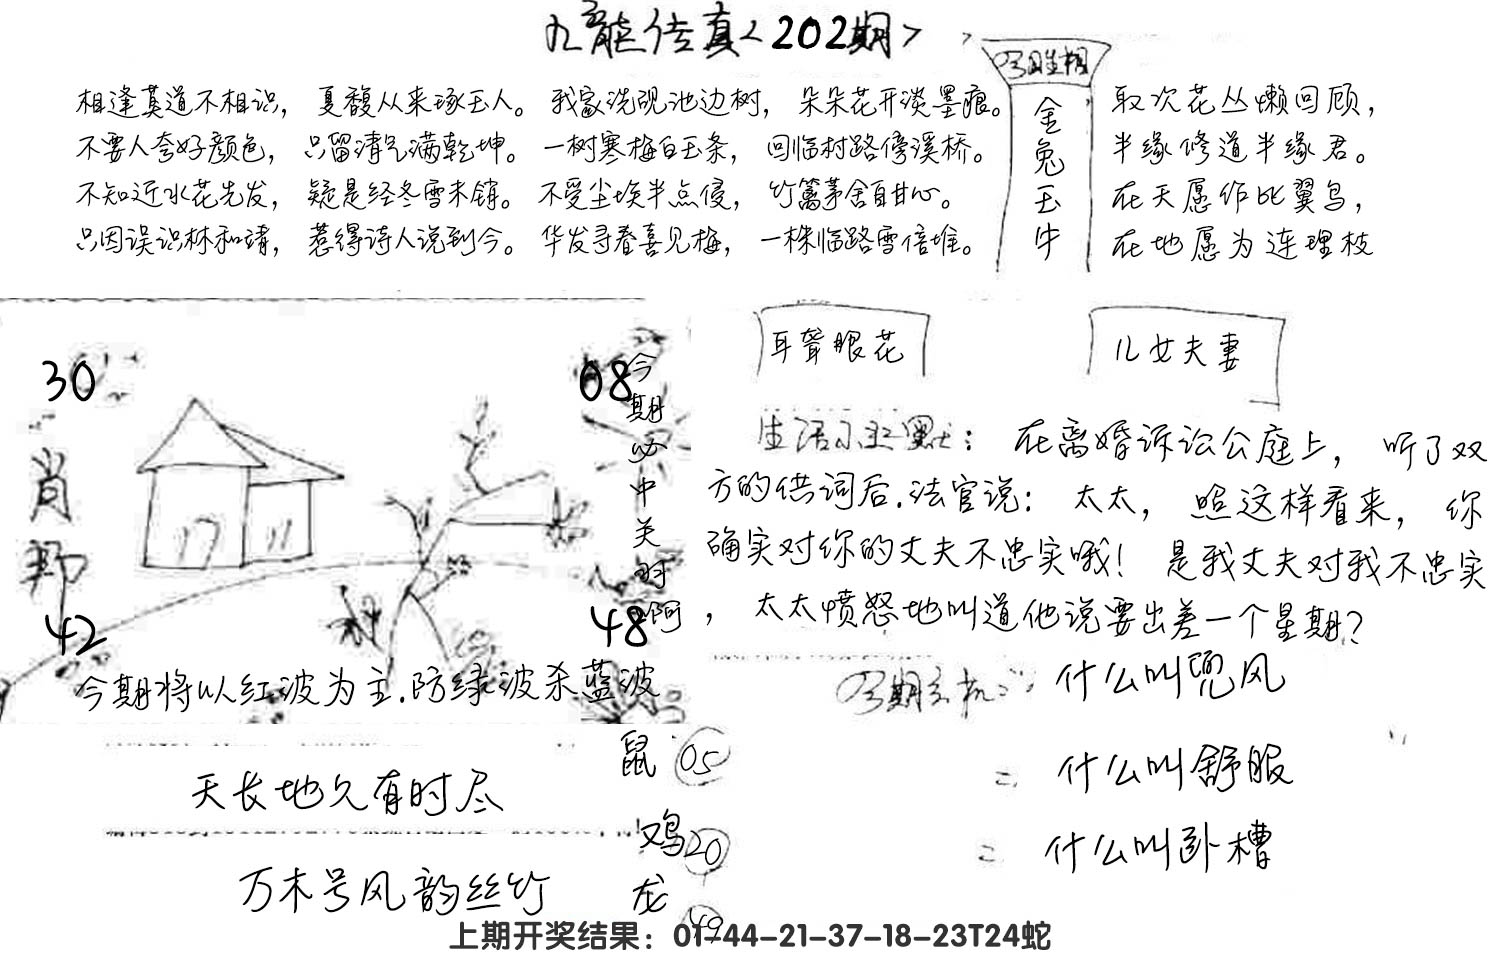 九龍传真<202期>
相逢莫道不相识，夏馥从来琢玉人。我家洗砚池边树，朵朵花开淡墨痕。
不要人夸好颜色，只留清气满乾坤。一树寒梅白玉条，回临村路傍溪桥。
不知近水花先发，疑是经冬雪未销。不受尘埃半点侵，竹篱茅舍自甘心。
只因误识林和靖，惹得诗人说到今。华发寻春喜见梅，一株临路雪倍堆。
今期生相
金兔玉牛
取次花丛懒回顾，
半缘修道半缘君。
在天愿作比翼鸟，
在地愿为连理枝
30
08
肖
42
48
今期必中关对啊
今期将以红波为主.防绿波杀蓝波
耳聋眼花
儿女夫妻
生活小幽默：在离婚诉讼公庭上，听了双
方的供词后.法官说：太太，照这样看来，你
确实对你的丈夫不忠实哦！是我丈夫对我不忠实
，太太愤怒地叫道他说要出差一个星期？
今期玄机：什么叫兜风
什么叫舒服
什么叫卧槽
天长地久有时尽
万木号风韵丝竹
鼠 05
鸡 20
龙 49
上期开奖结果：01-44-21-37-18-23T24蛇